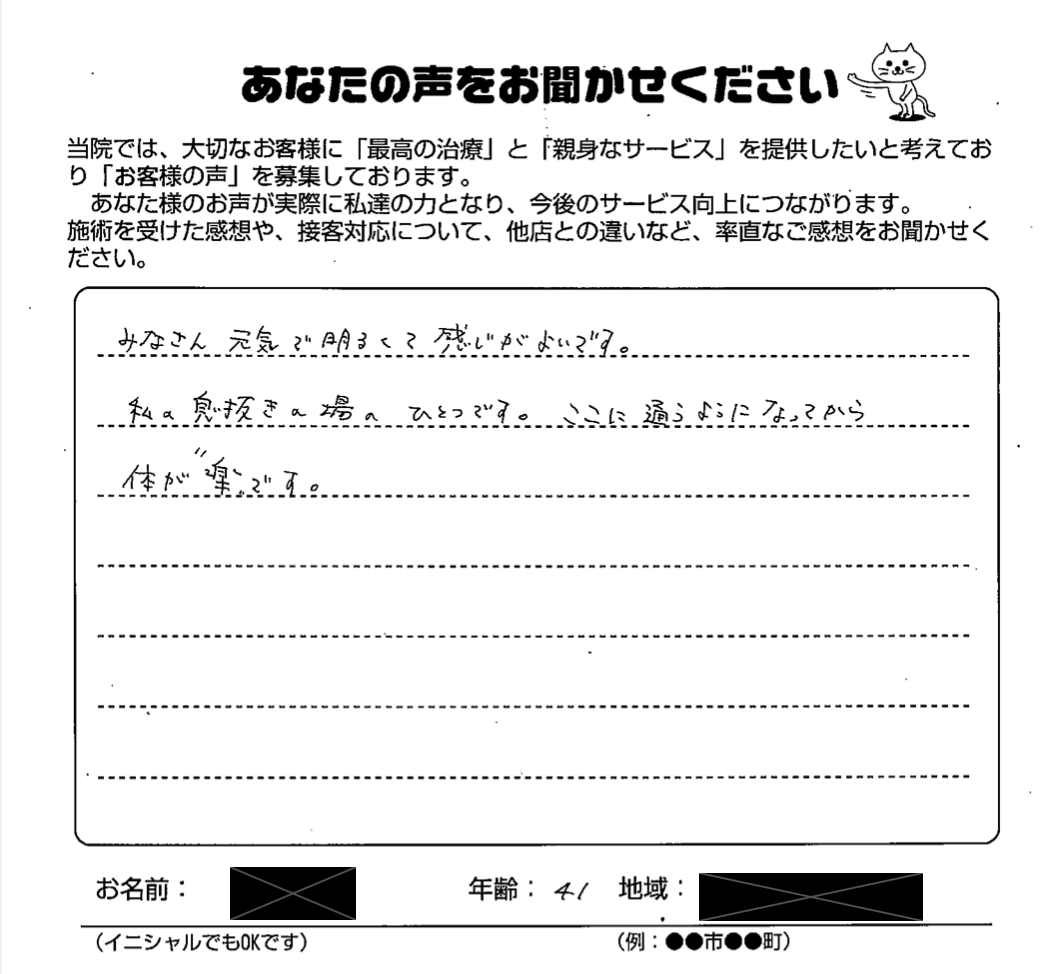 あなたの声をお聞かせください
当院では、大切なお客様に「最高の治療」と「親身なサービス」を提供したいと考えてお
り「お客様の声」を募集しております。
あなた様のお声が実際に私達の力となり、今後のサービス向上につながります。
施術を受けた感想や、接客対応について、他店との違いなど、率直なご感想をお聞かせく
ださい。
みなさん 元気で明るくて 感じがよいです。
私の息抜きの場の ひとつです。ここに通うようになってから
体が"楽"です。
お名前： 年齢：41 地域：
（イニシャルでもOKです） （例：●●市●●町）